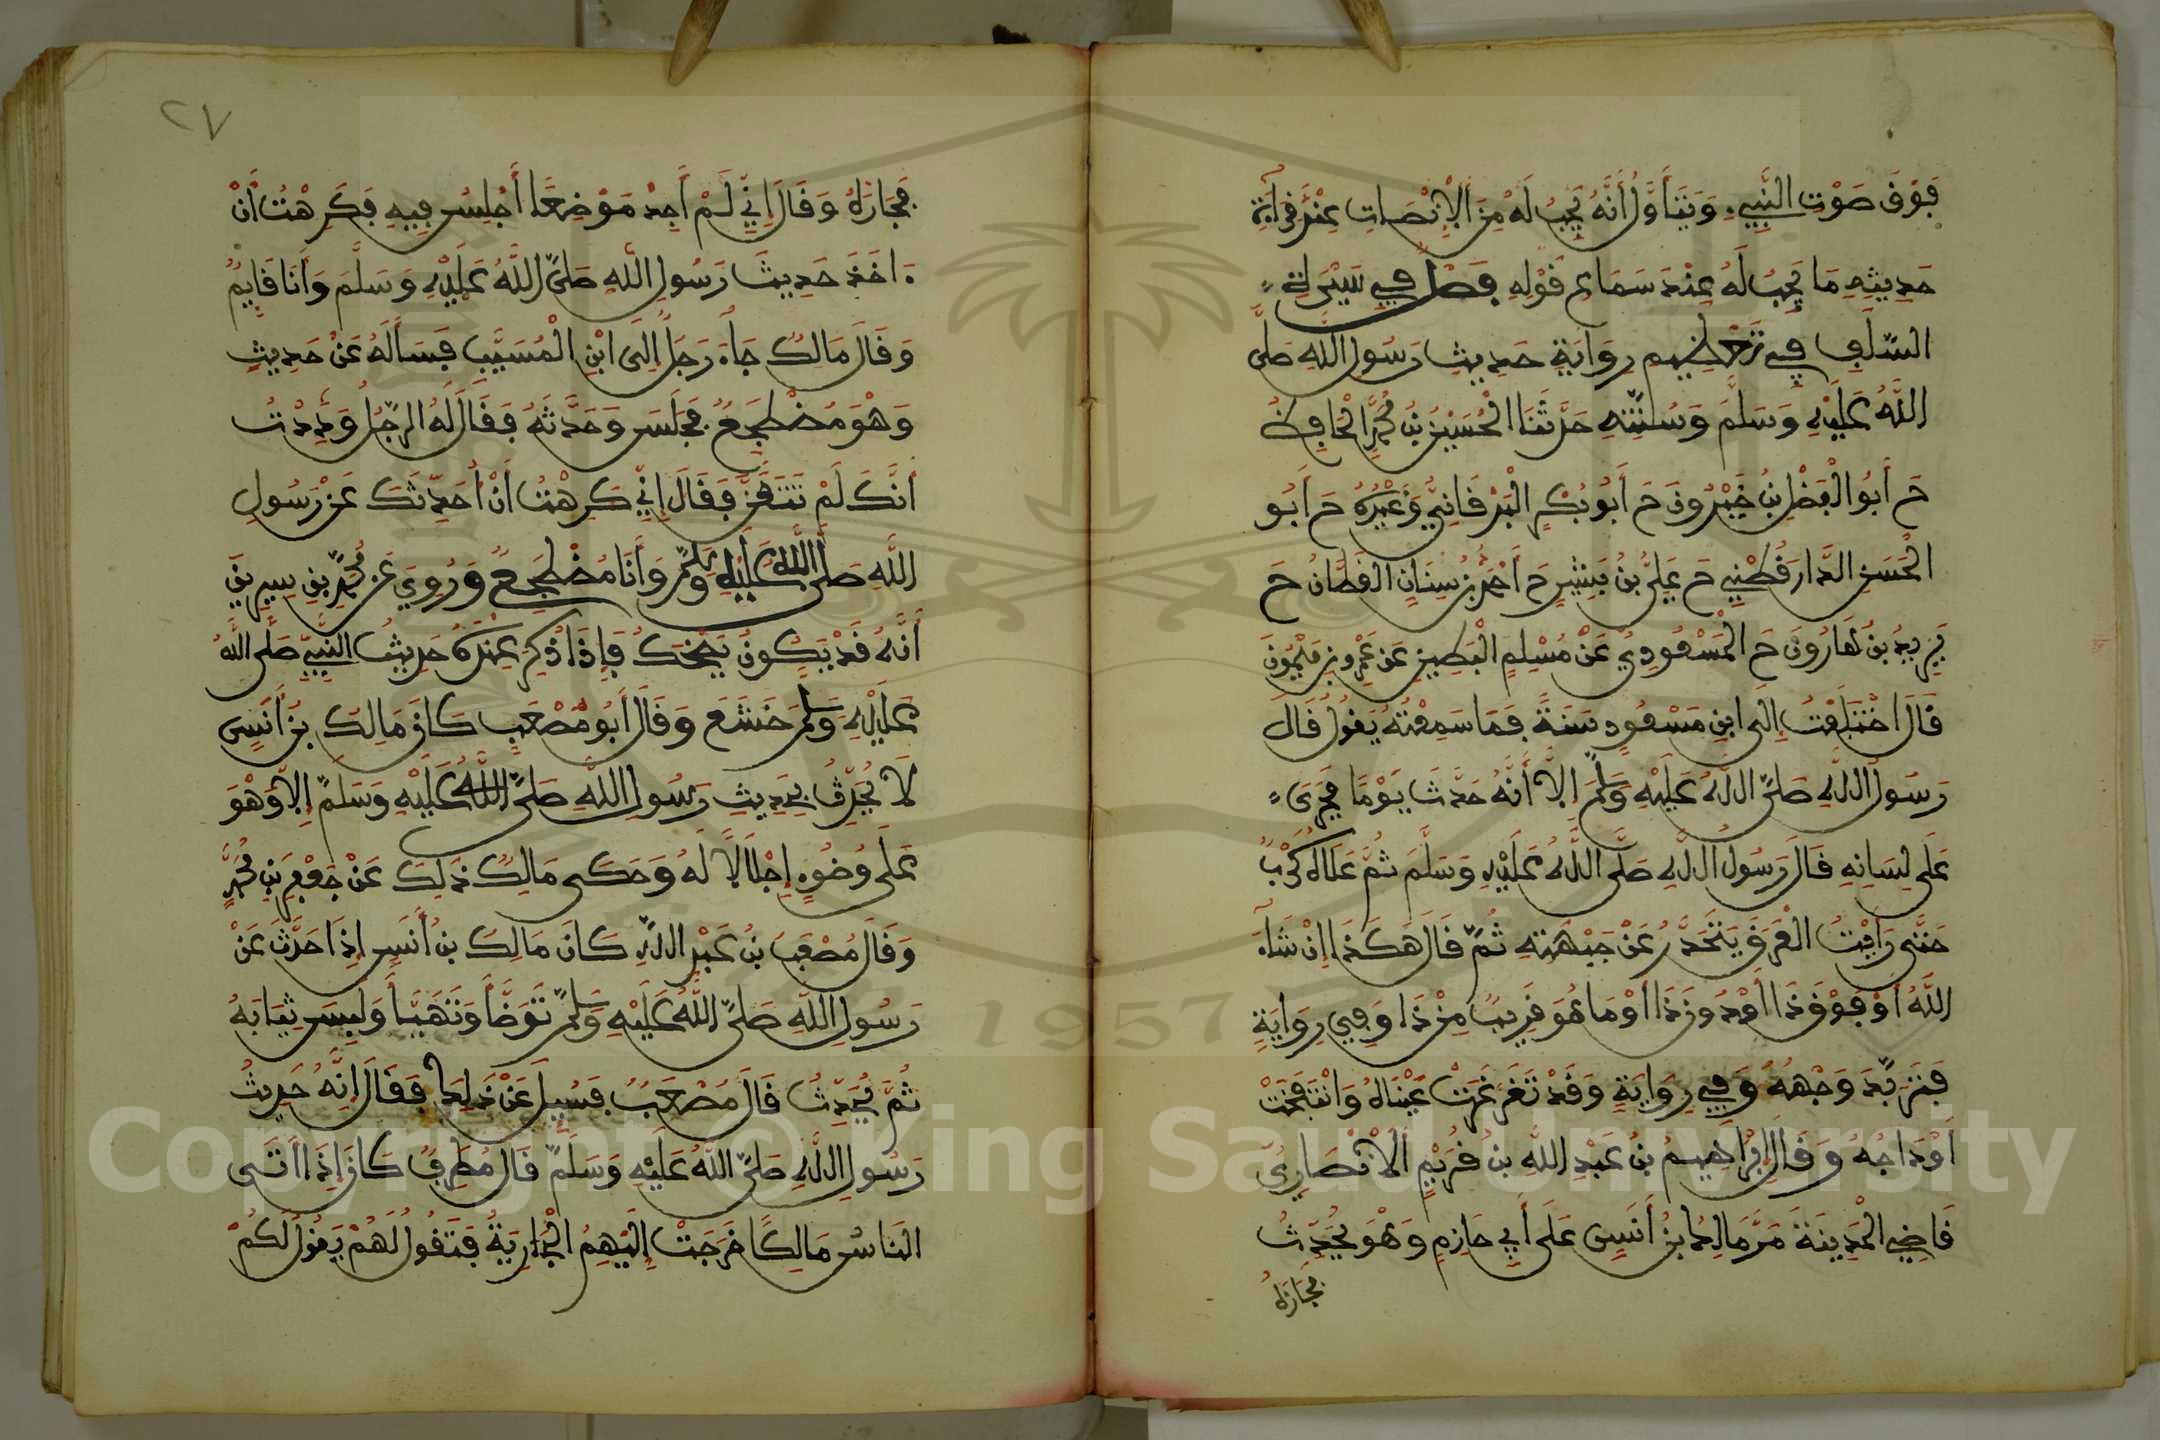 فَوْقَ صَوْتِ النَّبِيِّ وَيَتَأَوَّلُ أَنَّهُ يَجِبُ لَهُ مِنَ الْإِنْصَاتِ عِنْدَ قِرَاءَةِ
حَدِيثِهِ مَا يَجِبُ لَهُ عِنْدَ سَمَاعِ قَوْلِهِ فَصْلٌ فِي سِيرَةِ
السَّلَفِ فِي تَعْظِيمِ رِوَايَةِ حَدِيثِ رَسُولِ اللَّهِ صَلَّى
اللَّهُ عَلَيْهِ وَسَلَّمَ وَسُنَّتِهِ حَدَّثَنَا الْحُسَيْنُ بْنُ مُحَمَّدٍ الْحَافِظُ
حَ أَبُو الْفَضْلِ بْنُ خَيْرُونَ حَ أَبُو بَكْرٍ الْبَرْقَانِيُّ وَغَيْرُهُ حَ أَبُو
الْحَسَنِ الدَّارَقُطْنِيُّ حَ عَلِيُّ بْنُ بِشْرٍ حَ أَحْمَدُ بْنُ سِنَانٍ الْقَطَّانُ حَ
يَزِيدُ بْنُ هَارُونَ حَ الْمَسْعُودِيُّ عَنْ مُسْلِمٍ الْبَطِينِ عَنْ عَمْرِو بْنِ مَيْمُونَ
قَالَ اخْتَلَفْتُ إِلَى ابْنِ مَسْعُودٍ سَنَةً فَمَا سَمِعْتُهُ يَقُولُ قَالَ
رَسُولُ اللَّهِ صَلَّى اللَّهُ عَلَيْهِ وَسَلَّمَ إِلَّا أَنَّهُ حَدَّثَ يَوْمًا فَجَرَى
عَلَى لِسَانِهِ قَالَ رَسُولُ اللَّهِ صَلَّى اللَّهُ عَلَيْهِ وَسَلَّمَ ثُمَّ عَلَاهُ كَرْبٌ
حَتَّى رَأَيْتُ الْعَرَقَ يَتَحَدَّرُ عَنْ جَبْهَتِهِ ثُمَّ قَالَ هَكَذَا إِنْ شَاءَ
اللَّهُ أَوْ فَوْقَ ذَا أَوْ دُونَ ذَا أَوْ مَا هُوَ قَرِيبٌ مِنْ ذَا وَفِي رِوَايَةٍ
فَتَرَبَّدَ وَجْهُهُ وَفِي رِوَايَةٍ وَقَدْ تَغَرْغَرَتْ عَيْنَاهُ وَانْتَفَخَتْ
أَوْدَاجُهُ وَقَالَ إِبْرَاهِيمُ بْنُ عَبْدِ اللَّهِ بْنِ قُرَيْمٍ الْأَنْصَارِيُّ
قَاضِي الْمَدِينَةِ مَرَّ مَالِكُ بْنُ أَنَسٍ عَلَى أَبِي حَازِمٍ وَهُوَ يُحَدِّثُ
فَجَازَهُ
٢٧
فَجَازَهُ وَقَالَ إِنِّي لَمْ أَجِدْ مَوْضِعًا أَجْلِسُ فِيهِ فَكَرِهْتُ أَنْ
ءَاخُذَ حَدِيثَ رَسُولِ اللَّهِ صَلَّى اللَّهُ عَلَيْهِ وَسَلَّمَ وَأَنَا قَايِمٌ
وَقَالَ مَالِكٌ جَاءَ رَجُلٌ إِلَى ابْنِ الْمُسَيَّبِ فَسَأَلَهُ عَنْ حَدِيثٍ
وَهْوَ مُضْطَجِعٌ فَجَلَسَ وَحَدَّثَهُ فَقَالَ لَهُ الرَّجُلُ وَدِدْتُ
أَنَّكَ لَمْ تَتَعَنَّ فَقَالَ إِنِّي كَرِهْتُ أَنْ أُحَدِّثَكَ عَنْ رَسُولِ
اللَّهِ صَلَّى اللَّهُ عَلَيْهِ وَسَلَّمَ وَأَنَا مُضْطَجِعٌ وَرُوِيَ عَنْ مُحَمَّدِ بْنِ سِيرِينَ
أَنَّهُ قَدْ يَكُونُ يَضْحَكُ فَإِذَا ذُكِرَ عِنْدَهُ حَدِيثُ النَّبِيِّ صَلَّى اللَّهُ
عَلَيْهِ وَسَلَّمَ خَشَعَ وَقَالَ أَبُو مُصْعَبٍ كَانَ مَالِكُ بْنُ أَنَسٍ
لَا يُحَدِّثُ بِحَدِيثِ رَسُولِ اللَّهِ صَلَّى اللَّهُ عَلَيْهِ وَسَلَّمَ إِلَّا وَهْوَ
عَلَى وُضُوءٍ إِجْلَالًا لَهُ وَحَكَى مَالِكٌ ذَلِكَ عَنْ جَعْفَرِ بْنِ مُحَمَّدٍ
وَقَالَ مُصْعَبُ بْنُ عَبْدِ اللَّهِ كَانَ مَالِكُ بْنُ أَنَسٍ إِذَا حَدَّثَ عَنْ
رَسُولِ اللَّهِ صَلَّى اللَّهُ عَلَيْهِ وَسَلَّمَ تَوَضَّأَ وَتَهَيَّأَ وَلَبِسَ ثِيَابَهُ
ثُمَّ يُحَدِّثُ قَالَ مُصْعَبٌ فَسُيِلَ عَنْ ذَلِكَ فَقَالَ إِنَّهُ حَدِيثُ
رَسُولِ اللَّهِ صَلَّى اللَّهُ عَلَيْهِ وَسَلَّمَ قَالَ مُطَرِّفٌ كَانَ إِذَا أَتَى
النَّاسُ مَالِكًا خَرَجَتْ إِلَيْهِمُ الْجَارِيَةُ فَتَقُولُ لَهُمْ يَقُولُ لَكُمْ
1957
Copyright © King Saud University